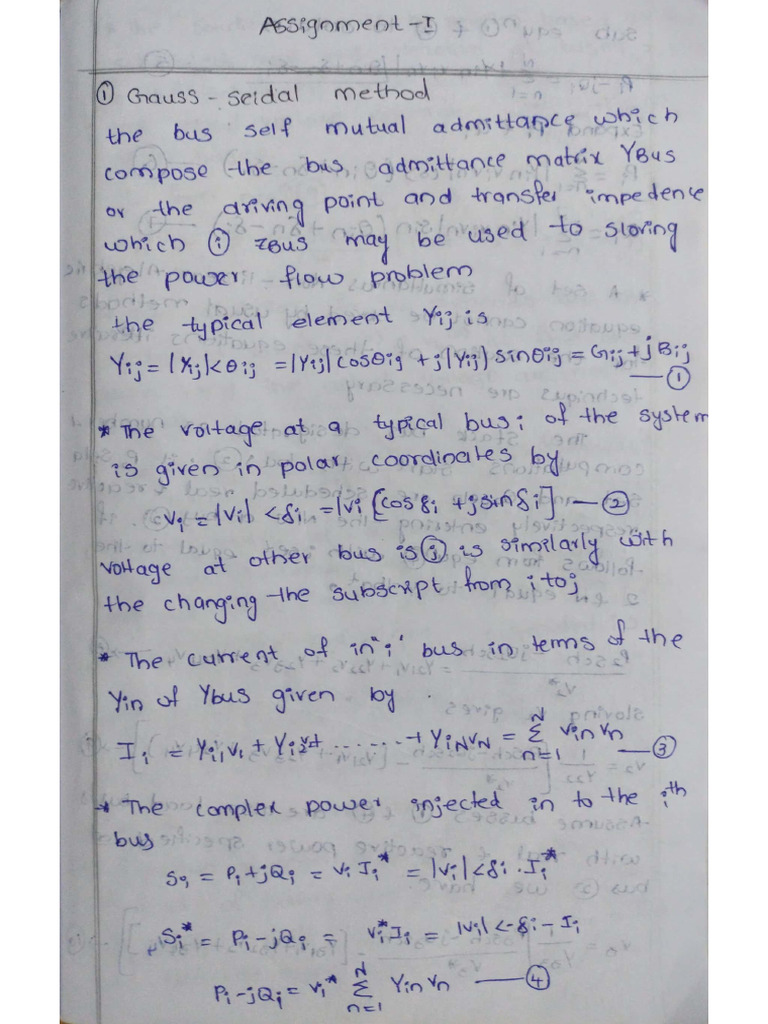 Assignment-I
① Gauss-seidal method
the bus self mutual admittance which
compose the bus admittance matrix YBus
or the driving point and transfer impedence
which ⓘ ZBUS may be used to sloving
the power flow problem
the typical element Yij is
Yij = |Yij|<θij = |Yij|cosθij + j|Yij|sinθij = Gij + jBij
—①
* The voltage at a typical bus i of the system
is given in polar coordinates by
Vi = |Vi| <δi = |Vi [cosδi + jsinδi] —②
voltage at other bus is ⓙ is similarly with
the changing the subscript from i to j
* The current of in "i' bus in terms of the
Yin of Ybus given by
Ii = Yi1V1 + Yi2V2+ ....... + YiNVN = N∑n=1 Vin Vn —③
* The complex power injected in to the ith
bus
Si = Pi+jQi = Vi Ii* = |Vi|<δi . Ii*
Si* = Pi-jQi = Vi*Ii = |Vi| <-δi - Ii
Pi-jQi = Vi* N∑n=1 Yin Vn —④